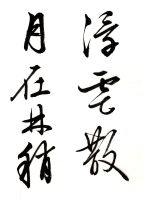 浮雲散
月在林稍